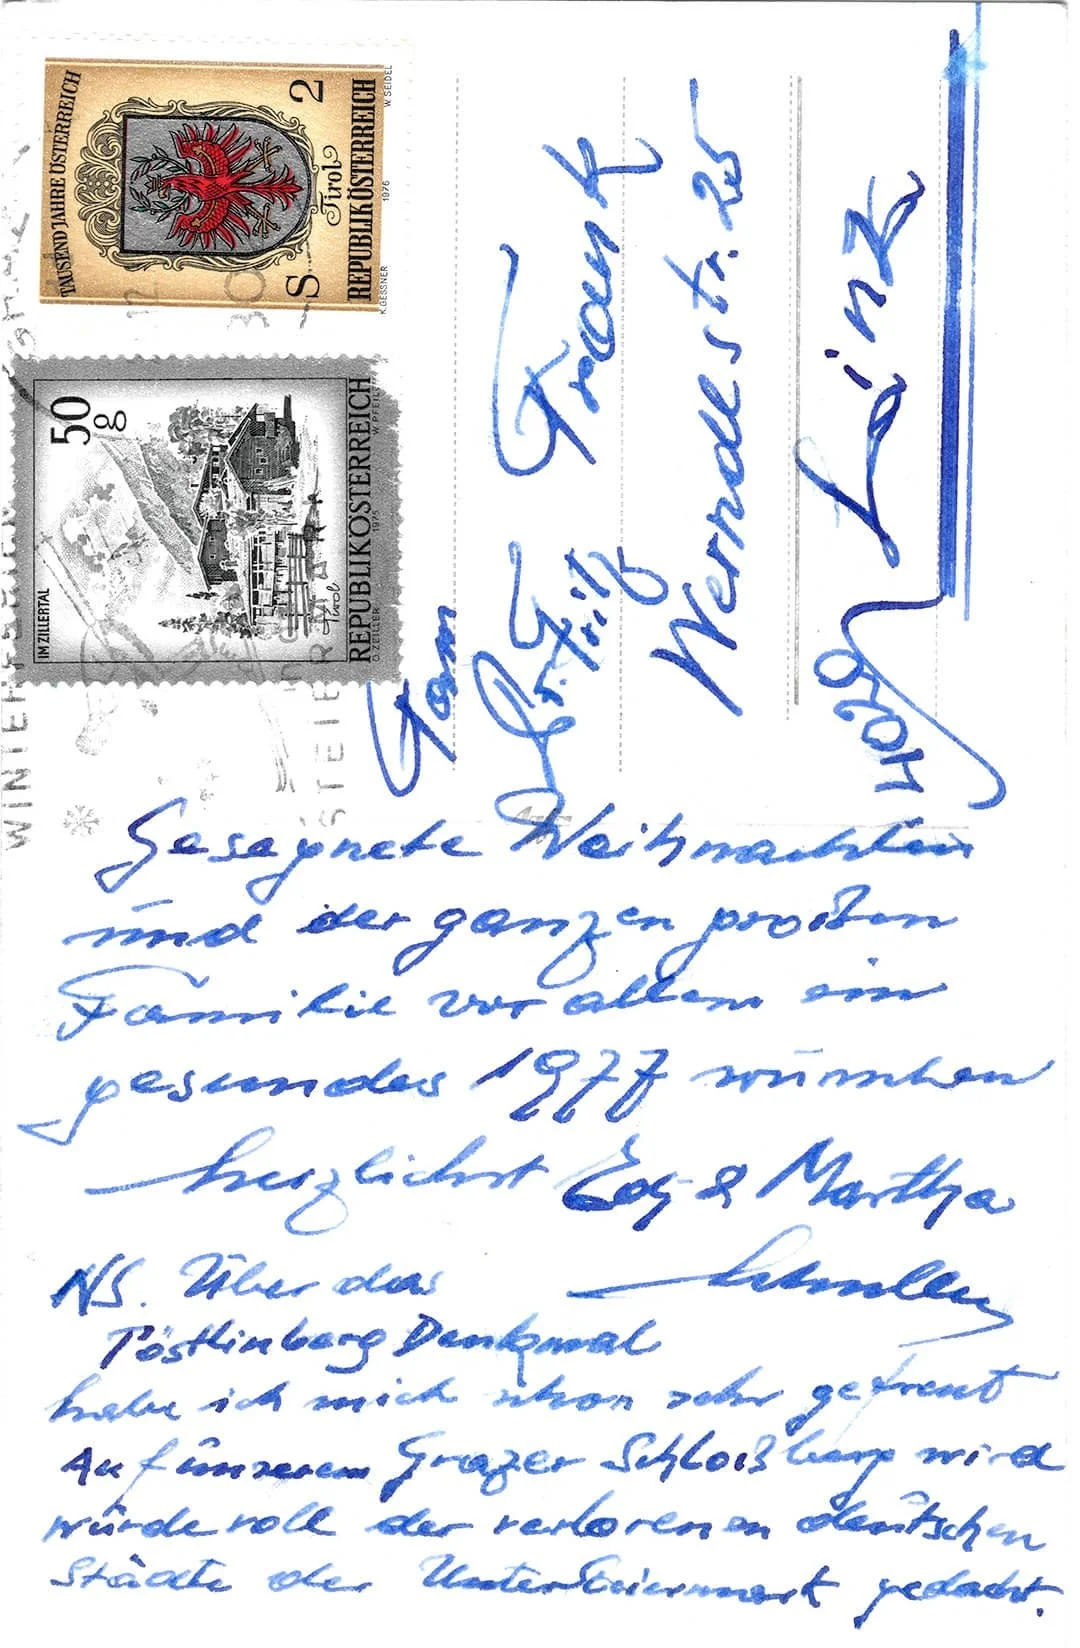 TAUSEND JAHRE ÖSTERREICH
S 2
Tirol
REPUBLIK ÖSTERREICH
K. GESSNER 1976 W. SEIDEL
IM ZILLERTAL
50 g
Tirol
REPUBLIK ÖSTERREICH
O. ZEILLER 1973 W. PFEILER
WINTER
STEIERMARK
Fam
Fritz
Frank
Werndlstr. 25
4020 Linz
Gesegnete Weihnachten
und der ganzen großen
Familie vor allem ein
gesundes 1977 wünschen
herzlichst & Martha
NS. Über das
Pöstlinberg Denkmal
habe ich mich schon sehr gefreut
Auf unserem Grazer Schloßberg wird
würdevoll der verlorenen deutschen
Städte der Untersteiermark gedacht.